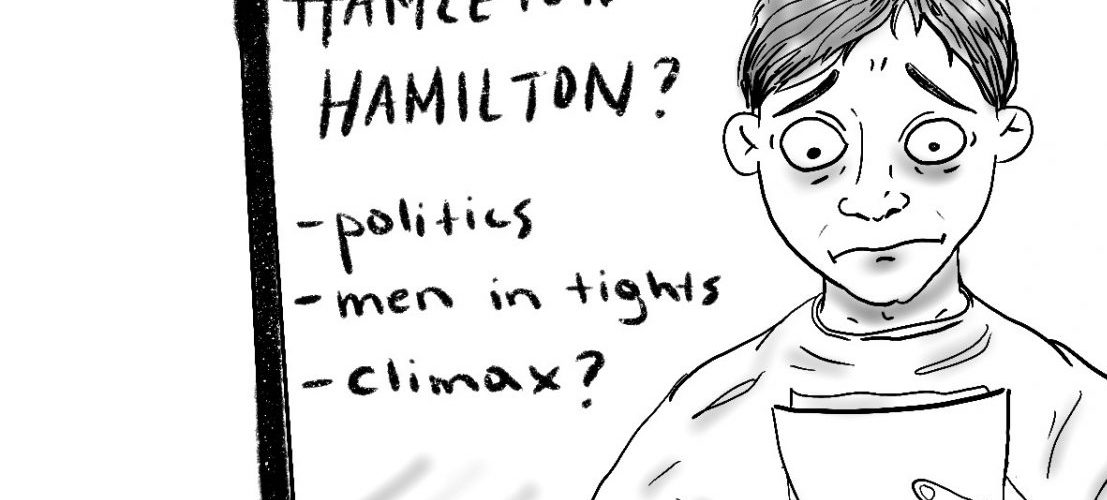 HAMLETON
HAMILTON?
- politics
- men in tights
- climax?